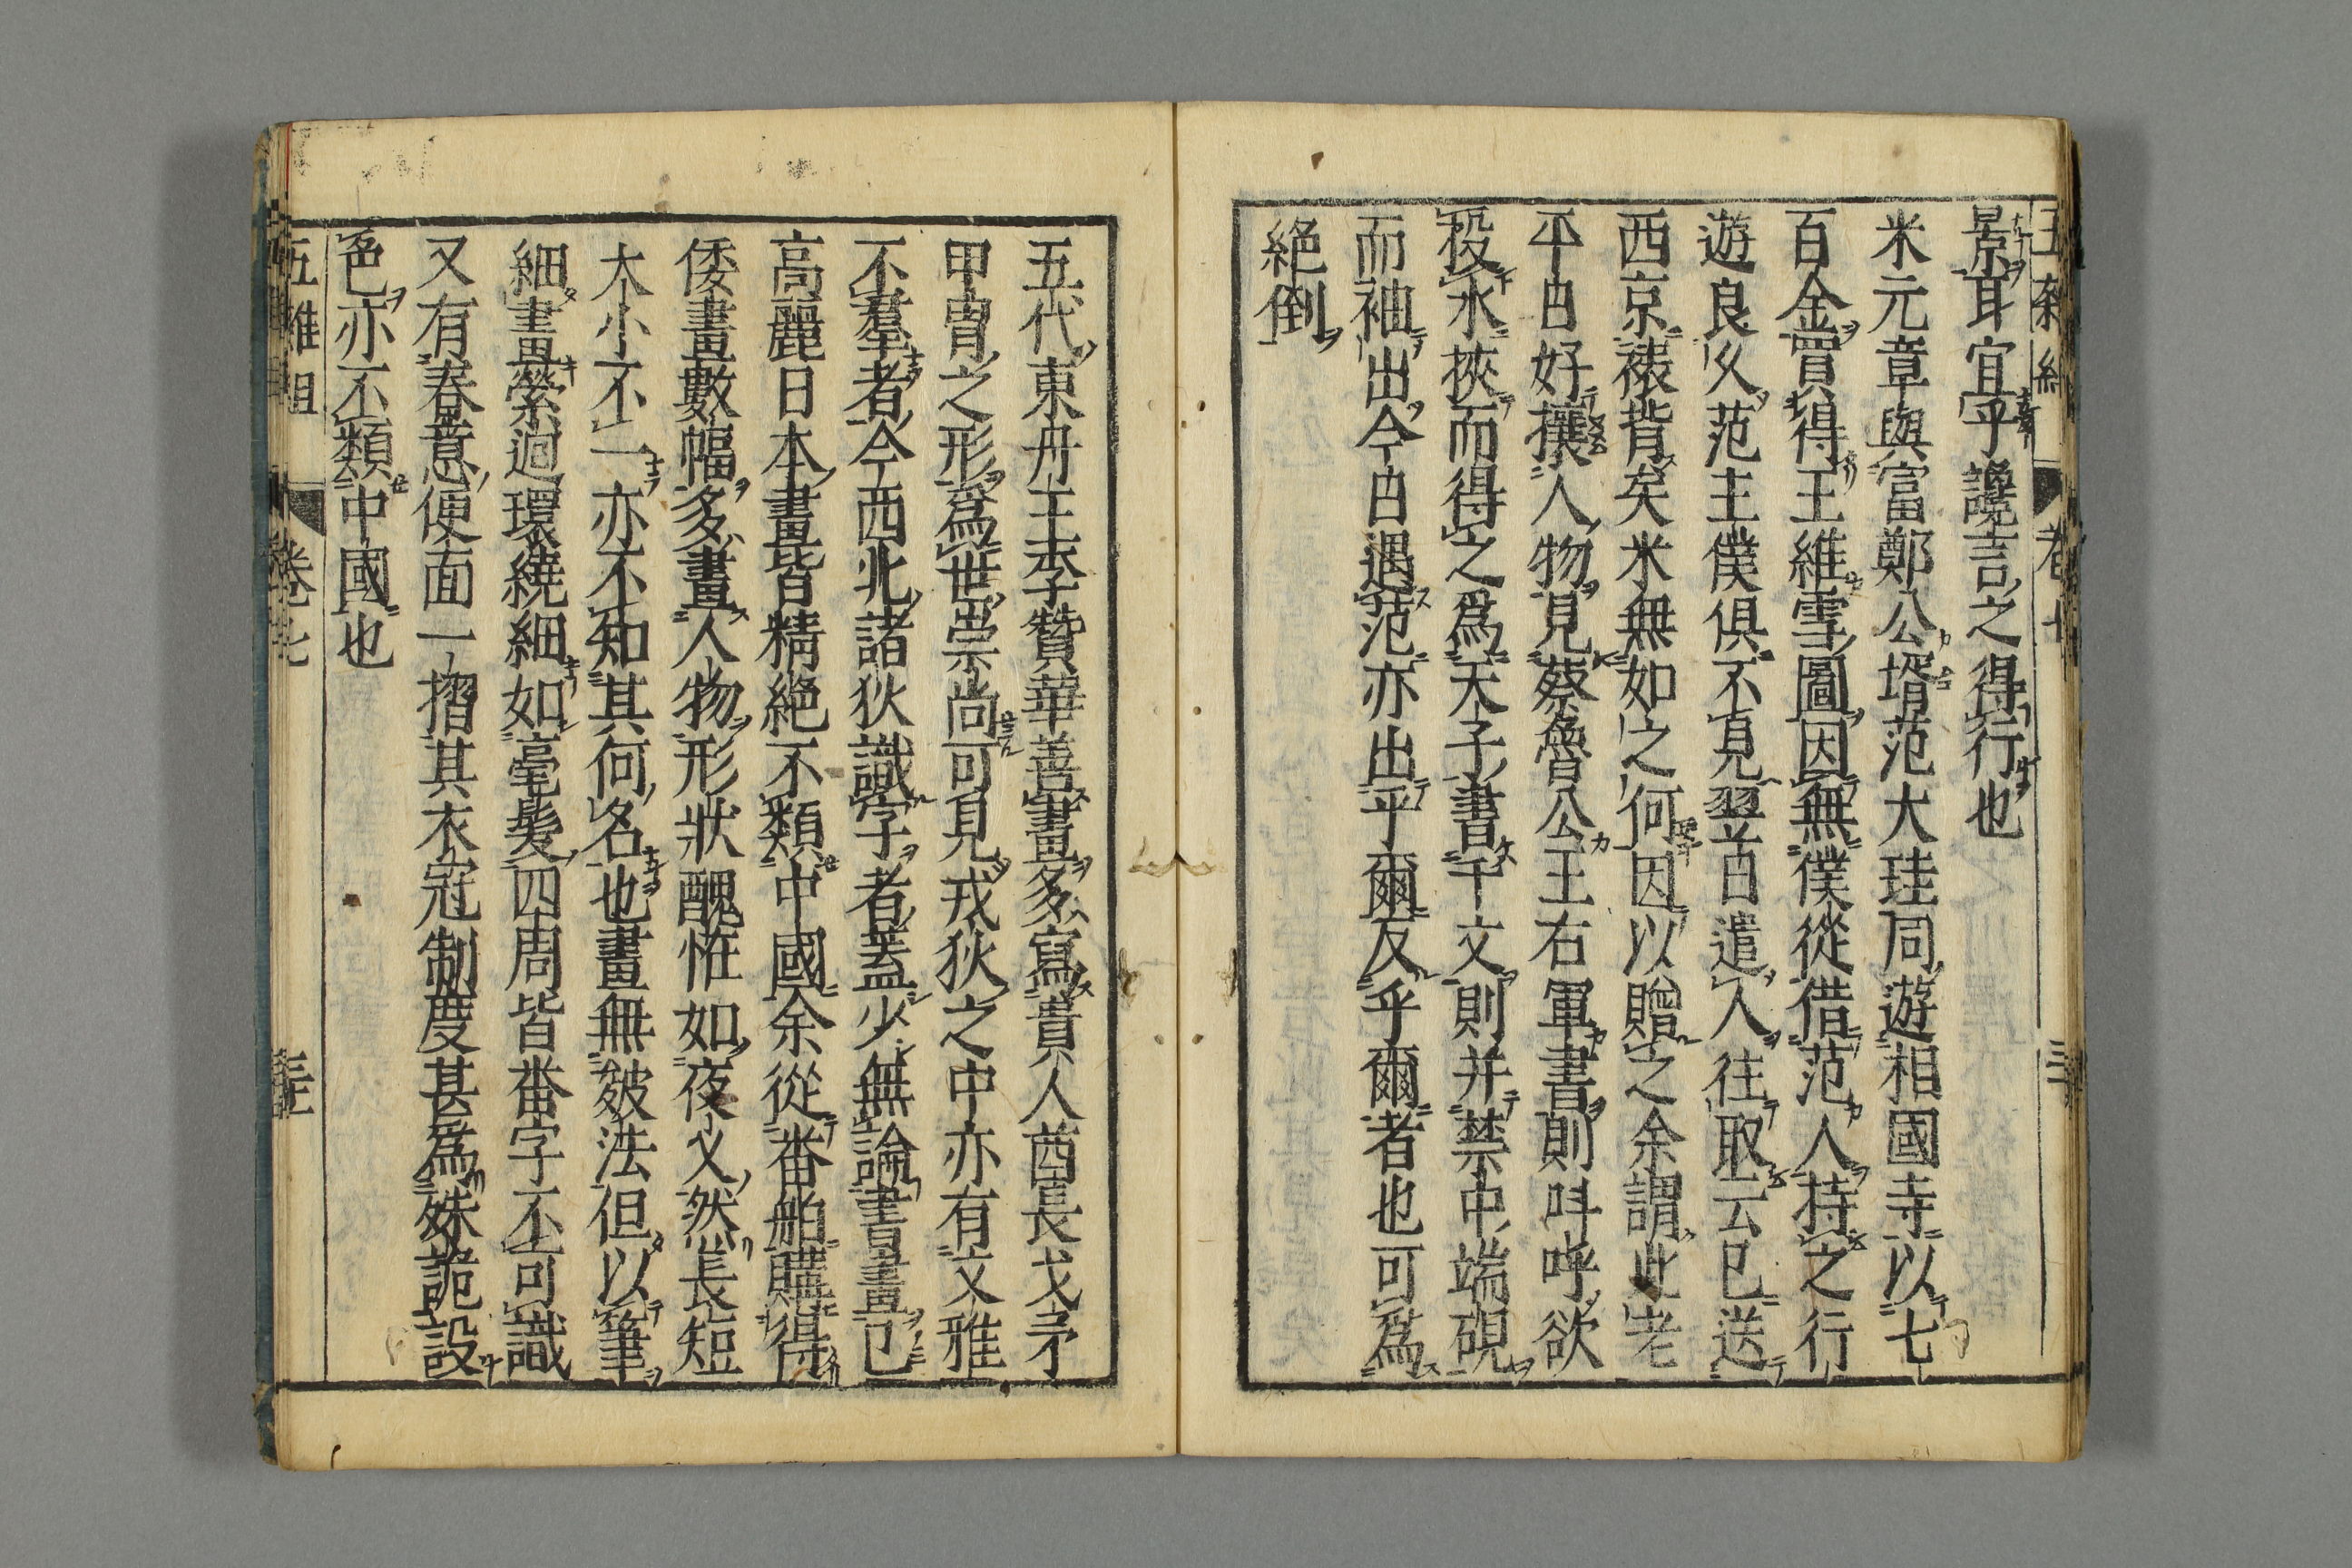 景耳宜乎讒言之得行也
米元章與富鄭公壻范大珪同遊相國寺以七
百金買得王維雪圖因無僕從借范人持之行
遊良乆范主僕俱不見翌日遣人往取云已送
西京裱背矣米無如之何因以贈之余謂此老
平日好攘人物見蔡魯公王右軍書則呌呼欲
投水挾而得之爲天子書千文則并禁中端硯
而袖出今日遇范亦出乎爾反乎爾者也可爲
絕倒
五代東丹王李贊華善畫多寫貴人酋長戈矛
甲冑之形爲世崇尚可見戎狄之中亦有文雅
不羣者今西北諸狄識字者蓋少無論書畫已
高麗日本畫皆精絕不類中國余從番舶購得
倭畫數幅多畫人物形狀醜恠如夜叉然長短
大小不一亦不知其何名也畫無皴法但以筆
細畫縈迴環繞細如毫髮四周皆番字不可識
又有春意便面一摺其衣冠制度甚爲殊詭設
色亦不類中國也
五雜組
卷七